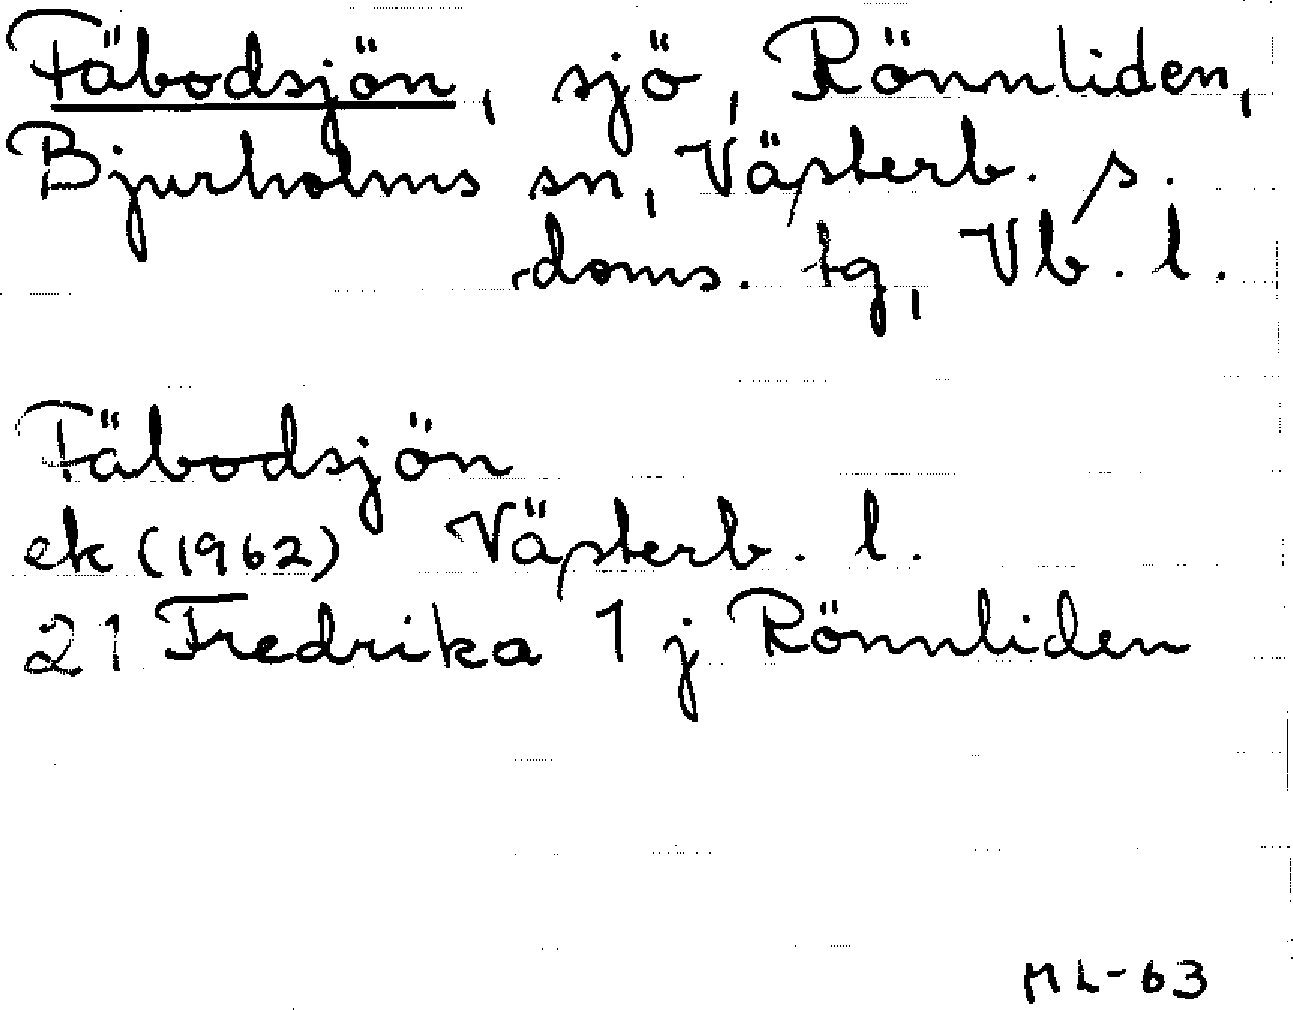 Fäbodsjön, sjö, Rönnliden,
Bjurholms sn, Västerb. s.
doms. tg, Vb. l.
Fäbodsjön
ek (1962) Västerb. l.
21 Fredrika 1 j Rönnliden
ML-63